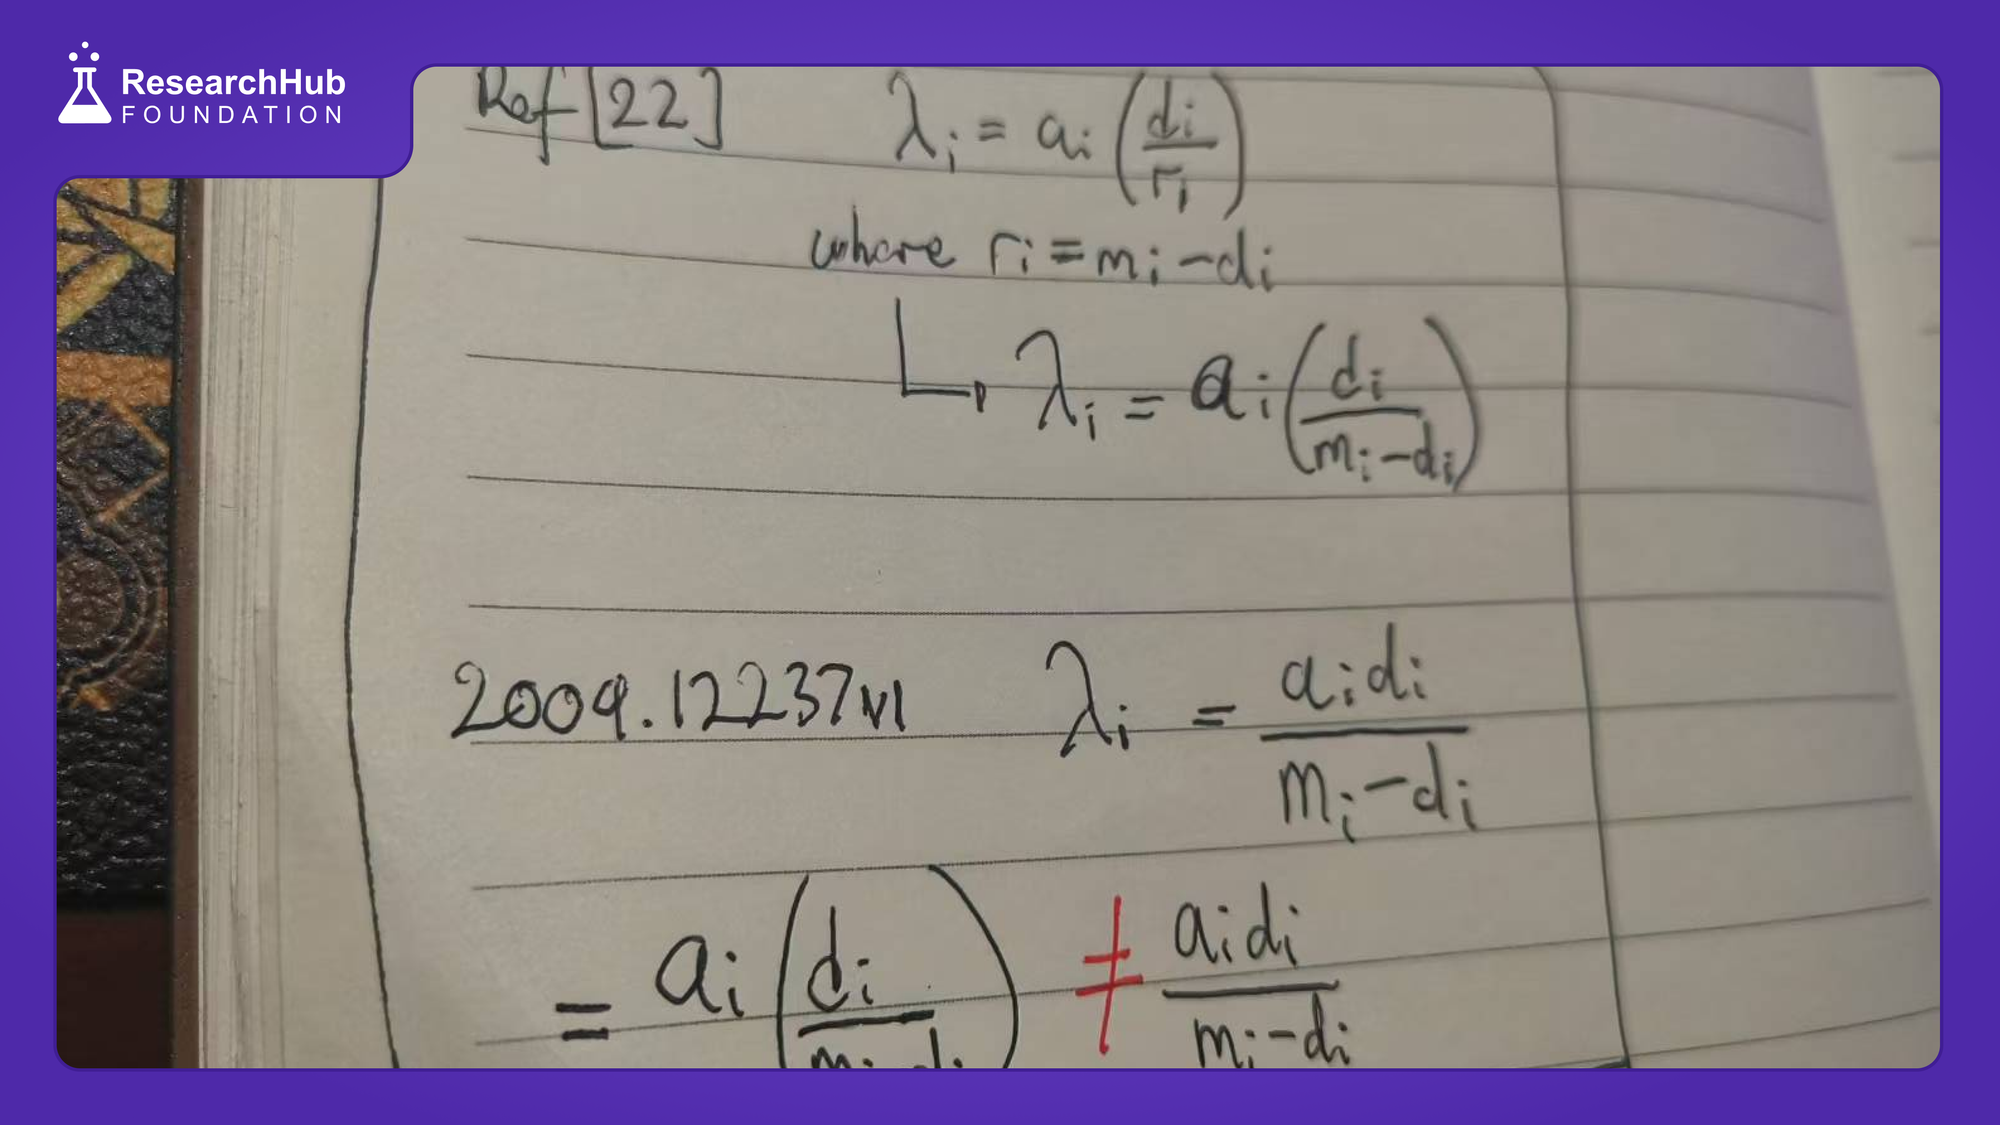 ResearchHub
FOUNDATION
Ref [22] λi = ai (di/ri)
where ri = mi - di
λi = ai (di/mi-di)
2009.12237v1 λi = aidi/mi-di
= ai (di/mi-di) ≠ aidi/mi-di